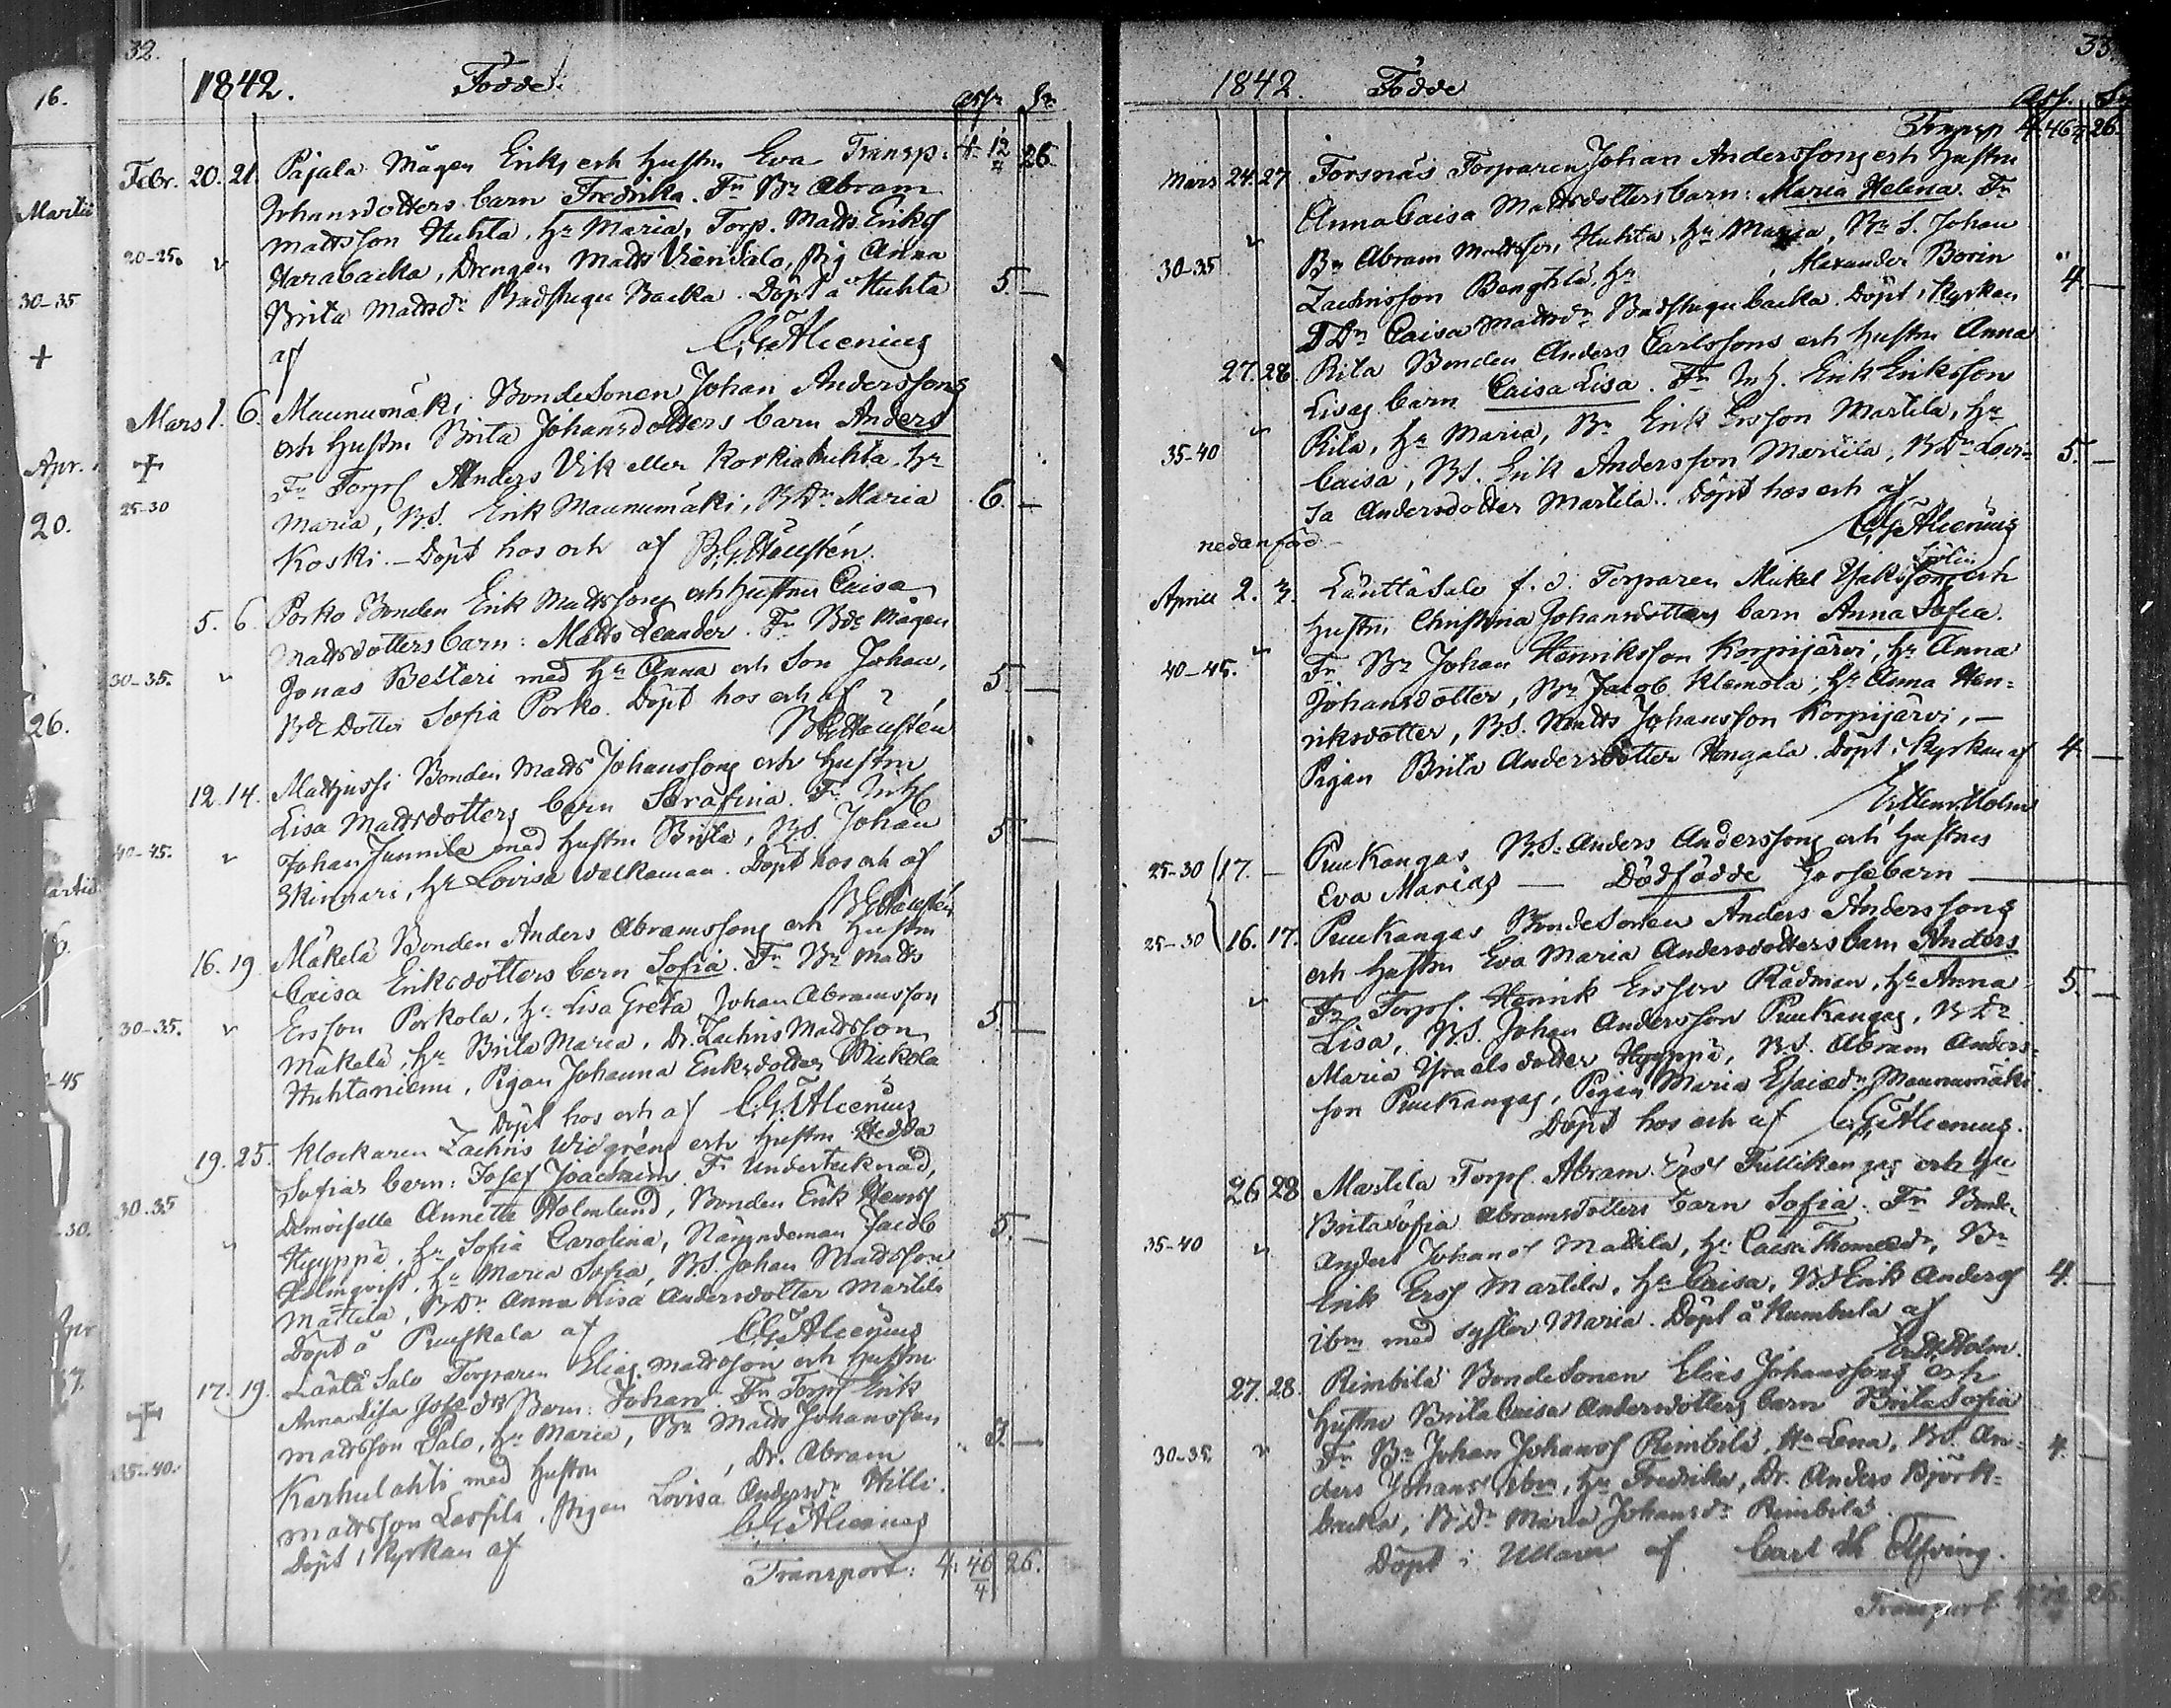 32.
1842. Födde.
Transp: 4. 12/4 26.
Febr. 20. 21. Pajala Mågen Eriks och Hustru Eva
Johansdotters barn Fredrika. Fr Br Abram
Mattsson Huhta, Hr Maria, Torp. Matts Eriks
20-25. Harabacka, Drengen Matts Viensalo, Pig Anna
Brita Mattsdr Badstugu Backa. Döpt å Huhta 5. —
af C.G. Alcenius
Mars 1. 6. Maunumäki BondeSonen Johan Anderssons
och Hustru Brita Johansdotters barn Anders
Fr Torp Anders Vik eller Korkiakuhta, Hr
25-30 Maria, B.S. Erik Maunumäki, BDr Maria 6. —
Koski. — Döpt hos och af B.G. Hausten.
5. 6. Porko Bonden Erik Mattssons och Hustrun Caisa
Mattsdotters barn: Matts Leander. Fr Bde Mågen
30-35. Jonas Bellari med Hr Anna och Son Johan, 5. —
Bde Dotter Sofia Porko. Döpt hos och af
B.G. Hausten
12. 14. Mattjussi Bonden Matts Johanssons och Hustru
Lisa Mattsdotters barn Serafina. Fr Inh
40-45. Johan Junnila med Hustru Brita, B.S. Johan 5 —
Skinnari, Hr Lovisa Walkaman. Döpt hos och af
B.G. Hausten
16. 19. Mäkelä Bonden Anders Abramssons och Hustru
Caisa Eriksdotters barn Sofia. Fr Br Matts
30-35. Ersson Porkola, Hr Lisa Greta Johan Abramsson 5. —
Mäkelä, Hr Brita Maria, Dr. Zachris Mattsson
Huhtaniemi, Pigan Johanna Eriksdotter Mickola
Döpt hos och af C.G. Alcenius
19. 25. Klockaren Zachris Widgréns och Hustru Hedda
Sofias barn: Josef Joachim. Fr Undertecknad,
30-35 Demoiselle Annette Holmlund, Bonden Erik Henrs
Hyyppä, Hr Sofia Carolina, Nämndeman Jacob 5. —
Holmqvist, Hr Maria Sofia, B.S. Johan Mattsson
Mattila, BDr Anna Lisa Andersdotter Martila
Döpt å Puuskala af C.G. Alcenius
17. 19. Länttä Salo Torparen Elias Mattsson och Hustru
Anna Lisa Josefdrs Barn: Johan. Fr Torp Erik
Mattsson Salo, Hr Maria, Br Matts Johansson 3. —
35-40. Karhulahti med Hustru , Dr. Abram
Mattsson Lassila, Pigan Lovisa Andersdr Hilli.
Döpt i Kyrkan af C.G. Alcenius
Transport: 4: 46/4 26.
33
1842. Födde
Transp 4. 46/4 26.
Mars 24. 27 Forsnäs Torparen Johan Anderssons och Hustru
Anna Caisa Mattsdotters barn: Maria Helena. Fr
30-35 Br Abram Mattsson Huhta, Hr Maria, Br S. Johan
Zachrisson Bengtila, Hr , Alexander Borin 4 —
Dr Caisa Mattsdr Badstugubacka. Döpt i Kyrkan
27. 28. Rita Bonden Anders Carlssons och Hustru Anna
Lisas barn Caisa Lisa. Fr Inh. Erik Eriksson
35-40 Rita, Hr Maria, Br Erik Ersson Martila, Hr
Caisa, B.S. Erik Andersson Martila, BDr Lovi= 5. —
sa Andersdotter Martila. Döpt hos och af
C.G. Alcenius
nedanföre
April 2. 3. Länttä Salo f.d. Torparen Mickel Isaksson Sjölin och
Hustru Christina Johansdotters barn Anna Sofia.
40-45. Fr Br Johan Henriksson Korpijärvi, Hr Anna
Johansdotter, Br Jacob Klemola, Hr Anna Hen=
riksdotter, B.S. Matts Johansson Korpijärvi, —
Pigan Brita Andersdotter Hongala. Döpt i Kyrkan af 4. —
Holm
25-30 17. — Puukangas B.S. Anders Anderssons och Hustrus
Eva Marias — Dödfödde Gossebarn —
25-30 16. 17. Puukangas BondeSonen Anders Anderssons
och Hustru Eva Maria Andersdotters barn Anders
Fr Torp. Henrik Ersson Rådman, Hr Anna 5. —
Lisa, B.S. Johan Andersson Puukangas, BDr
Maria Israelsdotter Hyyppä, B.S. Abram Anders=
son Puukangas, Pigan Maria Esaiædr Maunumäki.
Döpt hos och af C.G. Alcenius.
26 28 Martila Torp. Abram Ers Tullikangas och Hu
Brita Sofia Abramsdotters barn Sofia. Fr Bonde
35-40 Anders Johans Mattila, Hr Caisa Thomædr, Br
Erik Ers Martila, Hr Caisa, B.S. Erik Anders 4. —
ibm med syster Maria. Döpt å Kumbula af
Holm.
27. 28. Rimbilä BondeSonen Elias Johanssons och
Hustru Brita Caisa Andersdotters barn Brita Sofia
30-35. Fr Br Johan Johans Rimbilä, Hr Lena, B.S. An= 4. —
ders Johans ibm, Hr Fredrika, Dr. Anders Björk=
backa, BDr Maria Johansdr Rimbilä.
Döpt i af Carl Elfving.
Transport 26